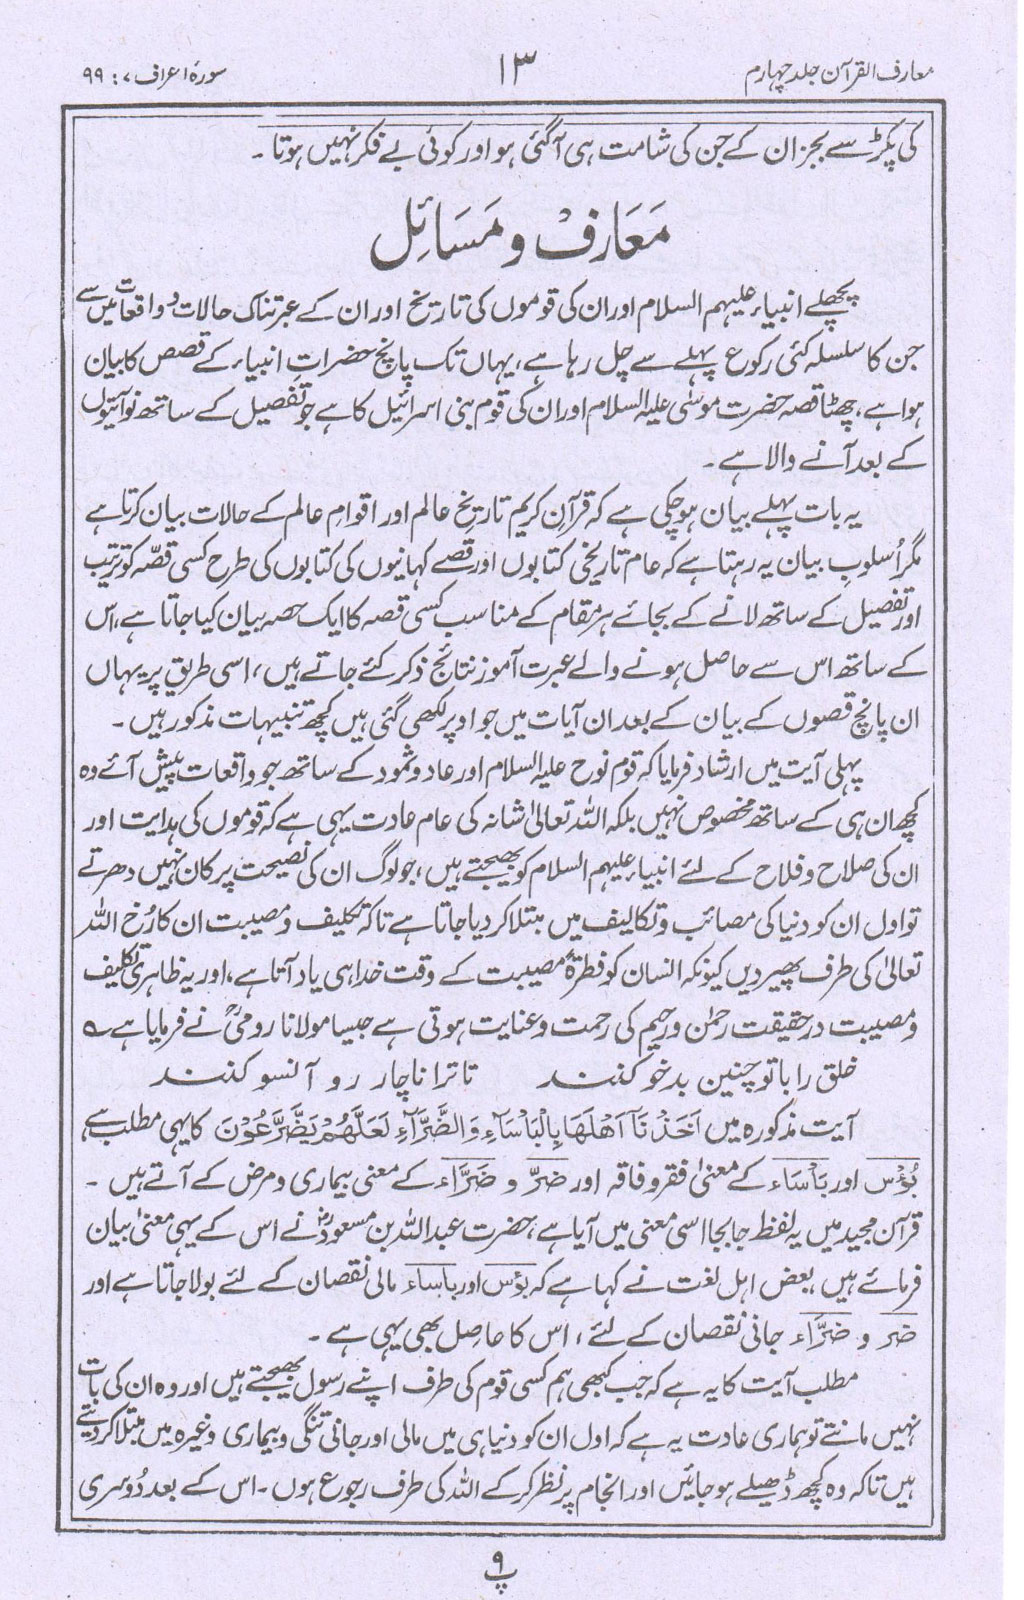 معارف القرآن جلد چہارم
۱۳
سورۂ اعراف ۷ : ۹۹
کی پکڑ سے بجز ان کے جن کی شامت ہی آگئی ہو اور کوئی بے فکر نہیں ہوتا۔
مَعَارِف و مَسَائِل
پچھلے انبیاء علیہم السلام اور ان کی قوموں کی تاریخ اور ان کے عبرتناک حالات و واقعات میں سے
جن کا سلسلہ کئی رکوع پہلے سے چل رہا ہے، یہاں تک پانچ حضراتِ انبیاء کے قصص کا بیان
ہوا ہے، چھٹا قصہ حضرت موسیٰ علیہ السلام اور ان کی قوم بنی اسرائیل کا ہے جو تفصیل کے ساتھ نو آیتوں
کے بعد آنے والا ہے۔
یہ بات پہلے بیان ہوچکی ہے کہ قرآن کریم تاریخِ عالم اور اقوامِ عالم کے حالات بیان کرتا ہے
مگر اُسلوبِ بیان یہ رہتا ہے کہ عام تاریخی کتابوں اور قصے کہانیوں کی کتابوں کی طرح کسی قصّہ کو ترتیب
اور تفصیل کے ساتھ لانے کے بجائے ہر مقام کے مناسب کسی قصہ کا ایک حصہ بیان کیا جاتا ہے، اس
کے ساتھ اس سے حاصل ہونے والے عبرت آموز نتائج ذکر کئے جاتے ہیں، اسی طریق پر یہاں
ان پانچ قصوں کے بیان کے بعد ان آیات میں جو اوپر لکھی گئی ہیں کچھ تنبیہات مذکور ہیں۔
پہلی آیت میں ارشاد فرمایا کہ قوم نوح علیہ السلام اور عاد و ثمود کے ساتھ جو واقعات پیش آئے وہ
کچھ ان ہی کے ساتھ مخصوص نہیں بلکہ اللہ تعالیٰ شانہ کی عام عادت یہی ہے کہ قوموں کی ہدایت اور
ان کی صلاح و فلاح کے لئے انبیاء علیہم السلام کو بھیجتے ہیں، جو لوگ ان کی نصیحت پر کان نہیں دھرتے
تو اول ان کو دنیا کی مصائب و تکالیف میں مبتلا کر دیا جاتا ہے تاکہ تکلیف و مصیبت ان کا رُخ اللہ
تعالیٰ کی طرف پھیر دیں کیونکہ انسان کو فطرۃً مصیبت کے وقت خدا ہی یاد آتا ہے، اور یہ ظاہری تکلیف
و مصیبت درحقیقت رحمٰن و رحیم کی رحمت و عنایت ہوتی ہے جیسا مولانا رومیؒ نے فرمایا ہے ؎
خلق را با تو چنین بدخو کنند تا ترا ناچار رو آنسو کنند
آیت مذکورہ میں اَخَذْنَآ اَھْلَھَا بِالْبَاْسَآءِ وَالضَّرَّآءِ لَعَلَّھُمْ یَضَّرَّعُوْنَ کا یہی مطلب ہے
بُؤْس اور بَاْسَاء کے معنیٰ فقر و فاقہ اور ضَرّ و ضَرَّاء کے معنی بیماری و مرض کے آتے ہیں۔
قرآن مجید میں یہ لفظ جابجا اسی معنی میں آیا ہے، حضرت عبداللہ بن مسعودؓ نے اس کے یہی معنیٰ بیان
فرمائے ہیں بعض اہل لغت نے کہا ہے کہ بؤس اور باساء مالی نقصان کے لئے بولا جاتا ہے اور
ضر و ضَرَّاء جانی نقصان کے لئے، اس کا حاصل بھی یہی ہے۔
مطلب آیت کا یہ ہے کہ جب کبھی ہم کسی قوم کی طرف اپنے رسول بھیجتے ہیں اور وہ ان کی بات
نہیں مانتے تو ہماری عادت یہ ہے کہ اول ان کو دنیا ہی میں مالی اور جانی تنگی و بیماری وغیرہ میں مبتلا کر دیتے
ہیں تاکہ وہ کچھ ڈھیلے ہو جائیں اور انجام پر نظر کرکے اللہ کی طرف رجوع ہوں۔ اس کے بعد دُوسری
۹
پ